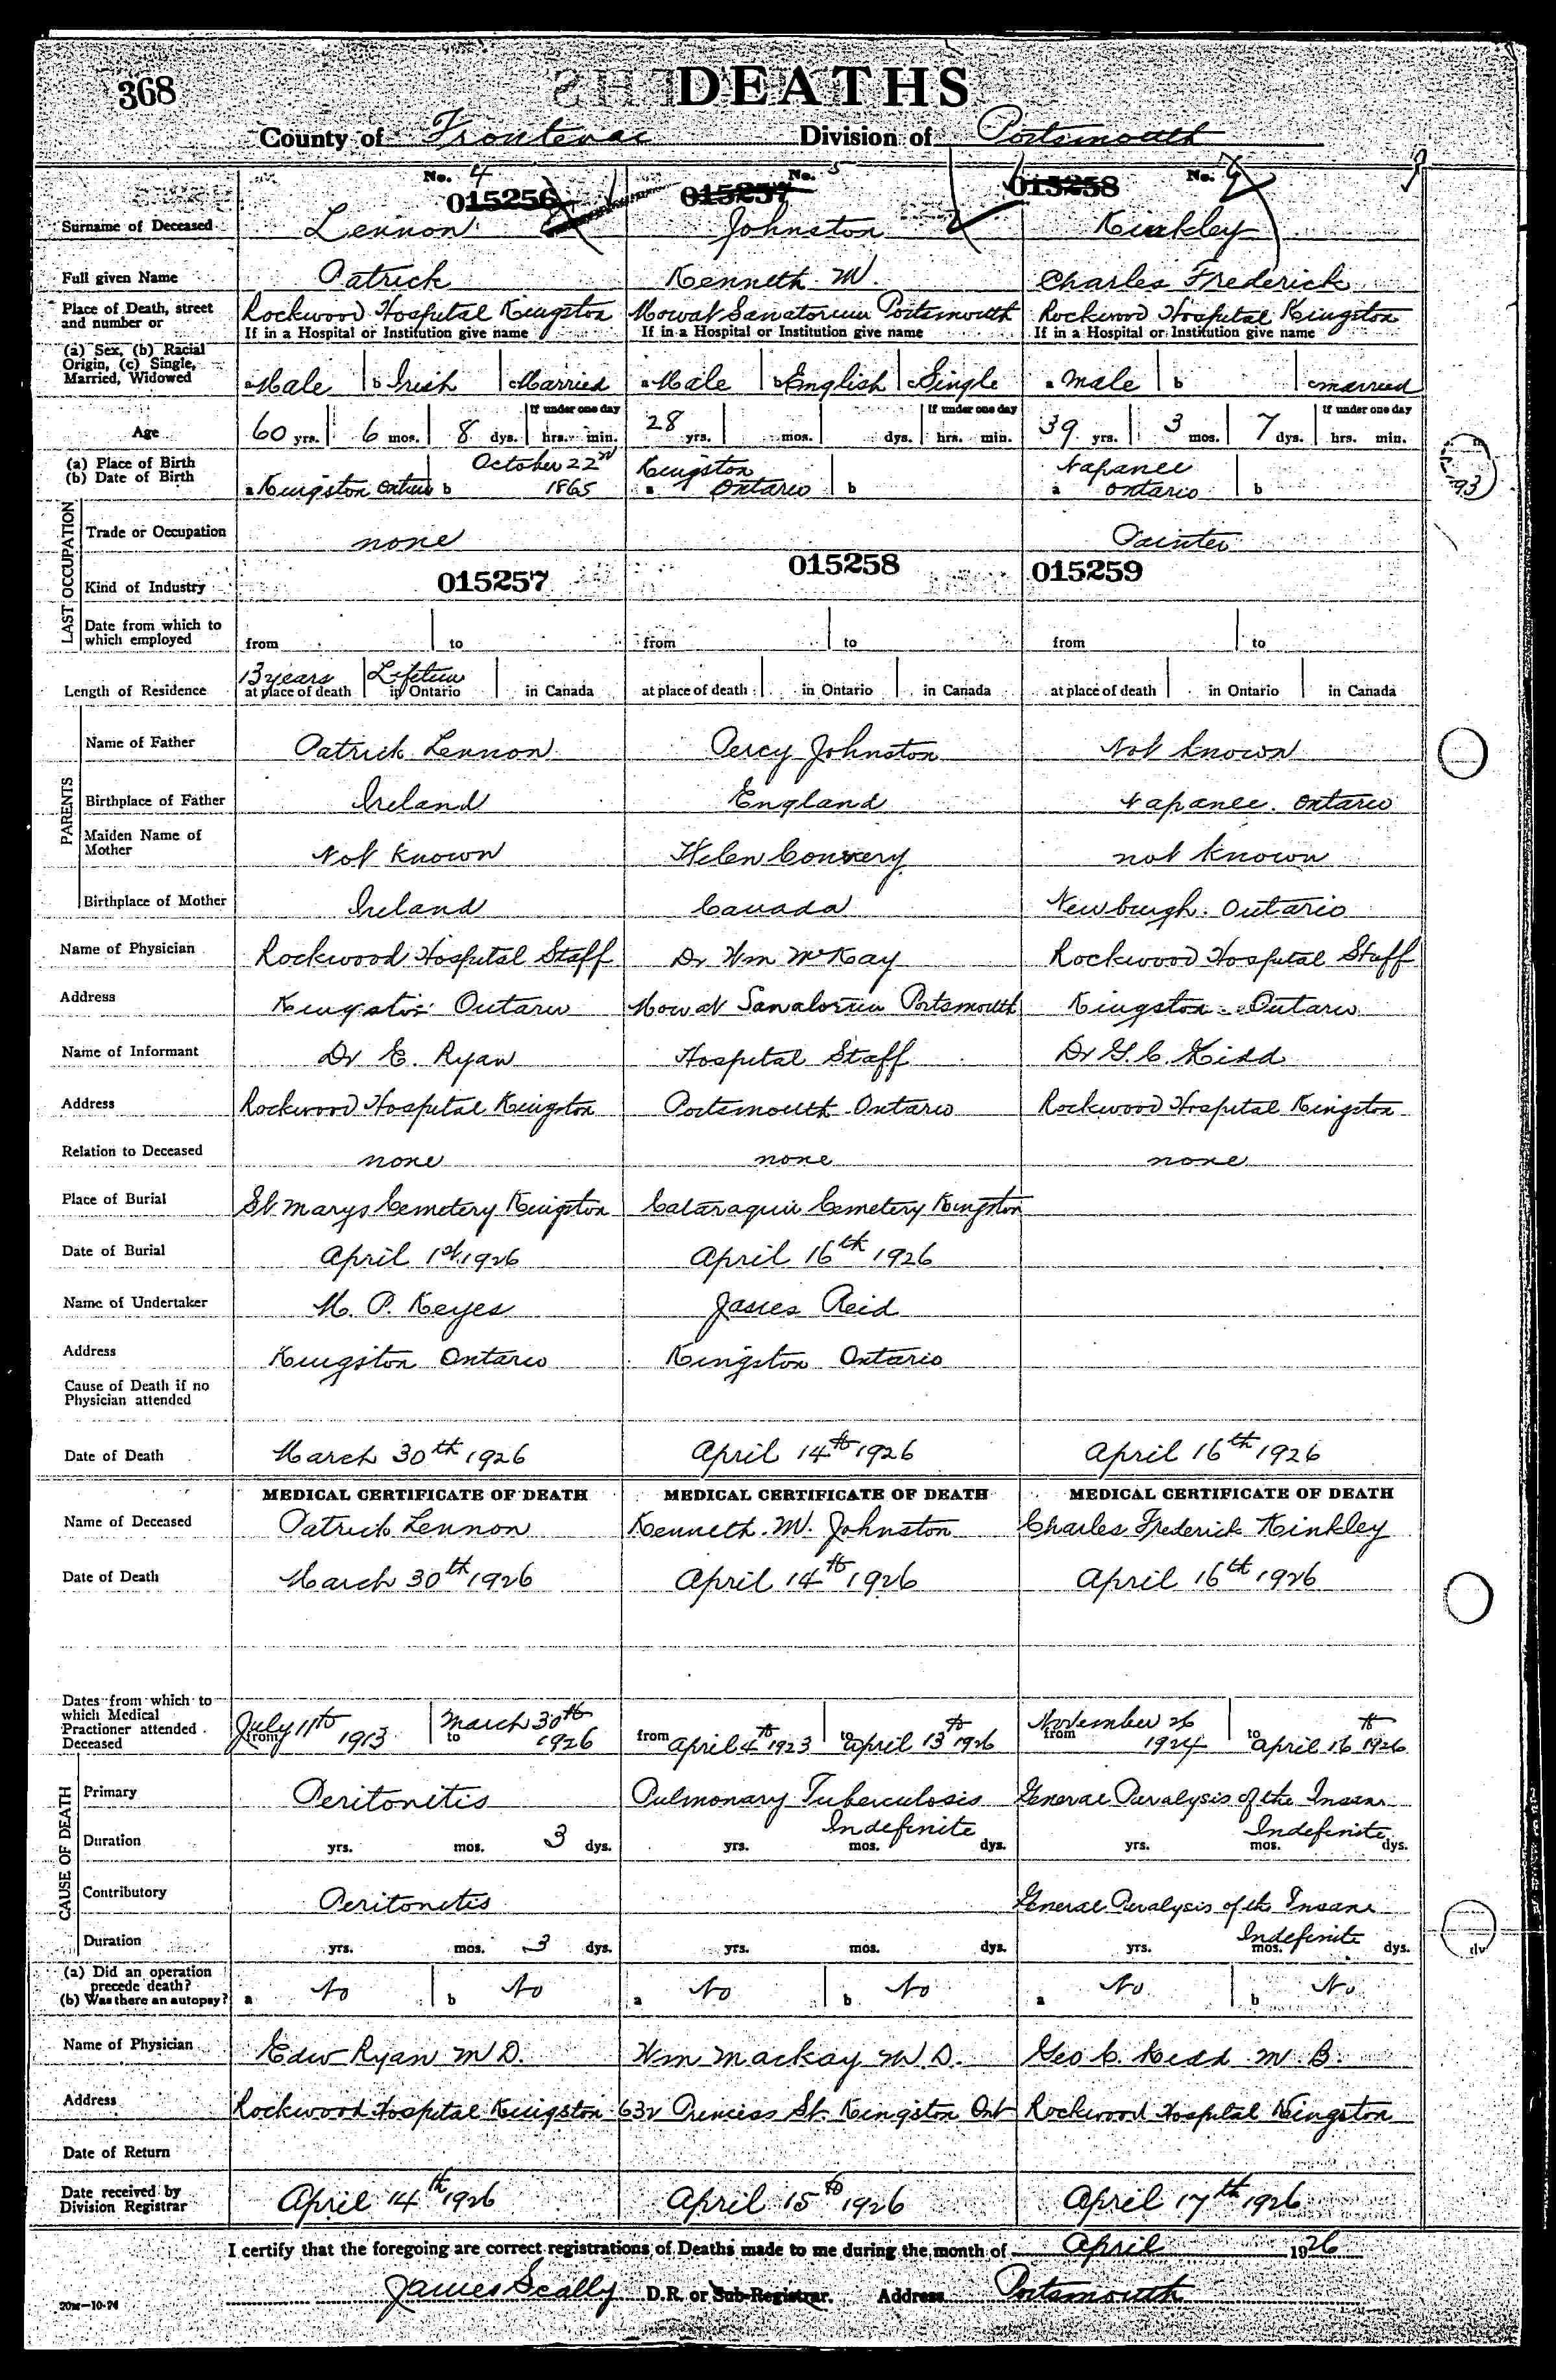 368
DEATHS
County of Frontenac Division of Portsmouth
No. 4 No. 5 No. 6
015256 015257 015258
Surname of Deceased Lennon Johnston Kinkley
Full given Name Patrick Kenneth M. Charles Frederick
Place of Death, street and number or Rockwood Hospital Kingston Mowat Sanatorium Portsmouth Rockwood Hospital Kingston
If in a Hospital or Institution give name If in a Hospital or Institution give name If in a Hospital or Institution give name
(a) Sex, (b) Racial Origin, (c) Single, Married, Widowed a Male b Irish c Married a Male b English c Single a male b c married
If under one day If under one day If under one day
Age 60 yrs. 6 mos. 8 dys. hrs. min. 28 yrs. mos. dys. hrs. min. 39 yrs. 3 mos. 7 dys. hrs. min.
(a) Place of Birth October 22nd Kingston Napanee
(b) Date of Birth a Kingston Ontario b 1865 a Ontario b a Ontario b
93
LAST OCCUPATION
Trade or Occupation none Painter
Kind of Industry 015257 015258 015259
Date from which to which employed from to from to from to
13 years Lifetime
Length of Residence at place of death in Ontario in Canada at place of death in Ontario in Canada at place of death in Ontario in Canada
PARENTS
Name of Father Patrick Lennon Percy Johnston Not known
Birthplace of Father Ireland England Napanee. Ontario
Maiden Name of Mother Not Known Helen Convery not known
Birthplace of Mother Ireland Canada Newburgh. Ontario
Name of Physician Rockwood Hospital Staff Dr Wm McKay Rockwood Hospital Staff
Address Kingston Ontario Mowat Sanatorium Portsmouth Kingston Ontario
Name of Informant Dr E. Ryan Hospital Staff Dr G. C. Kidd
Address Rockwood Hospital Kingston Portsmouth Ontario Rockwood Hospital Kingston
Relation to Deceased none none none
Place of Burial St Marys Cemetery Kingston Cataraqui Cemetery Kingston
Date of Burial April 1st 1926 April 16th 1926
Name of Undertaker M. P. Keyes James Reid
Address Kingston Ontario Kingston Ontario
Cause of Death if no Physician attended
Date of Death March 30th 1926 April 14th 1926 April 16th 1926
MEDICAL CERTIFICATE OF DEATH MEDICAL CERTIFICATE OF DEATH MEDICAL CERTIFICATE OF DEATH
Name of Deceased Patrick Lennon Kenneth. M. Johnston Charles Frederick Kinkley
Date of Death March 30th 1926 April 14th 1926 April 16th 1926
Dates from which to which Medical Practioner attended Deceased from July 11th 1913 to March 30th 1926 from April 4th 1923 to April 13th 1926 from November 26 1924 to April 16th 1926
CAUSE OF DEATH
Primary Peritonitis Pulmonary Tuberculosis General Paralysis of the Insane
Duration yrs. mos. 3 dys. yrs. mos. Indefinite dys. yrs. mos. Indefinite dys.
Contributory Peritonitis General Paralysis of the Insane
Duration yrs. mos. 3 dys. yrs. mos. dys. yrs. mos. Indefinite dys.
(a) Did an operation precede death?
(b) Was there an autopsy? a No b No a No b No a No b No
Name of Physician Edw Ryan M D. Wm Mackay M. D. Geo C. Kidd M. B.
Address Rockwood Hospital Kingston 632 Princess St. Kingston Ont Rockwood Hospital Kingston
Date of Return
Date received by Division Registrar April 14th 1926 April 15th 1926 April 17th 1926
I certify that the foregoing are correct registrations of Deaths made to me during the month of April 1926
James Scally D.R. or Sub-Registrar. Address Portsmouth